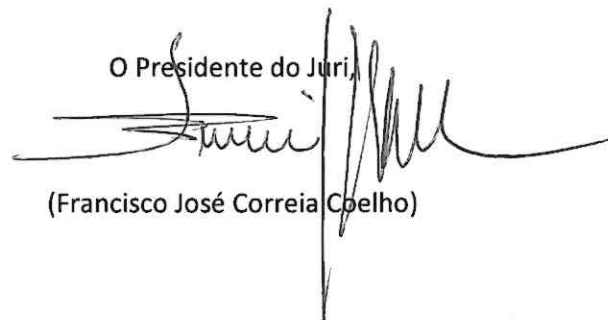 O Presidente do Juri,
(Francisco José Correia Coelho)